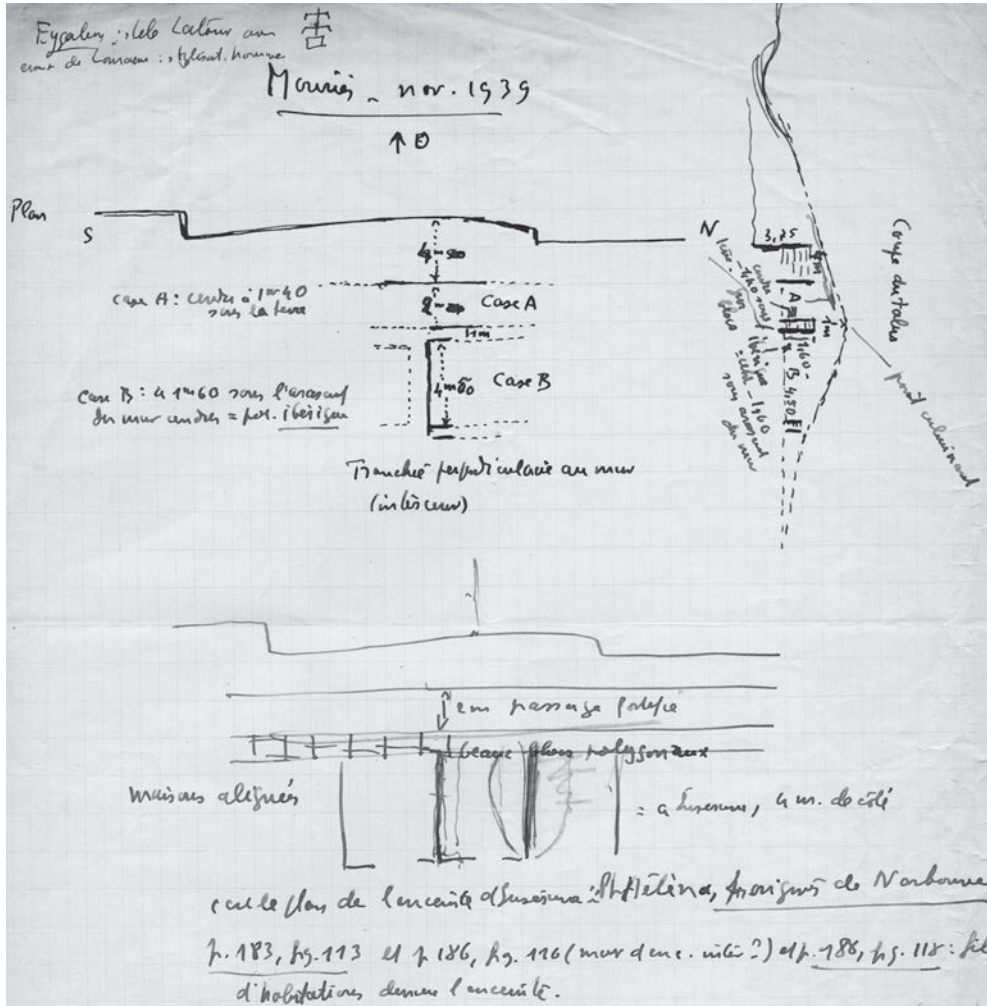 Eygalières : stèle Latour avec
croix de Lorraine : stylisat. homme
Mouriès - nov. 1939
↑ O
Plan
S
N
4m50
case A : cendre à 1m40
sous la terre
2m
Case A
1m
case B : à 1m60 sous l'arasement
du mur cendres = pér. ibérique
4m50
Case B
Tranchée perpendiculaire au mur
(intérieur)
3,25
4m
A
1m
1,60
B 4,50
Coupe du talus
point culminant
2m passage
beaux blocs polygonaux
maisons alignées
= à Ensérune, 4 m. de côté
sur le plan de l'enceinte d'Ensérune : Ph. Héléna, Origines de Narbonne
p. 183, fig. 113 et p. 186, fig. 116 (mur d'enc. intér ?) et p. 188, fig. 118 :
d'habitations derrière l'enceinte.